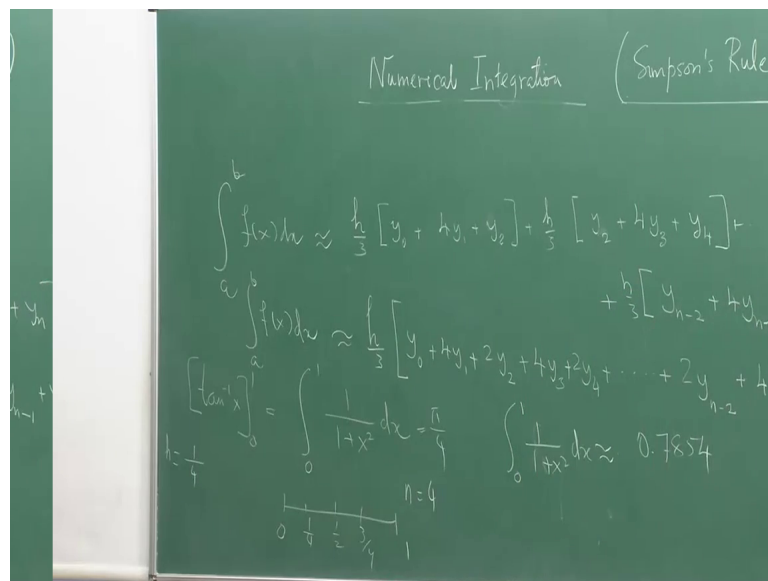 )
Numerical Integration (Simpson's Rule
∫_a^b f(x)dx ≈ h/3 [y_0 + 4y_1 + y_2] + h/3 [y_2 + 4y_3 + y_4] + ..
+ h/3 [y_{n-2} + 4y_{n-
∫_a^b f(x)dx ≈ h/3 [y_0 + 4y_1 + 2y_2 + 4y_3 + 2y_4 + ..... + 2y_{n-2} + 4
+ y_n
y_{n-1} +
[tan^{-1}x]_0^1 = ∫_0^1 1/(1+x^2) dx = π/4
∫_0^1 1/(1+x^2) dx ≈ 0.7854
h = 1/4
n = 4
0 1/4 1/2 3/4 1